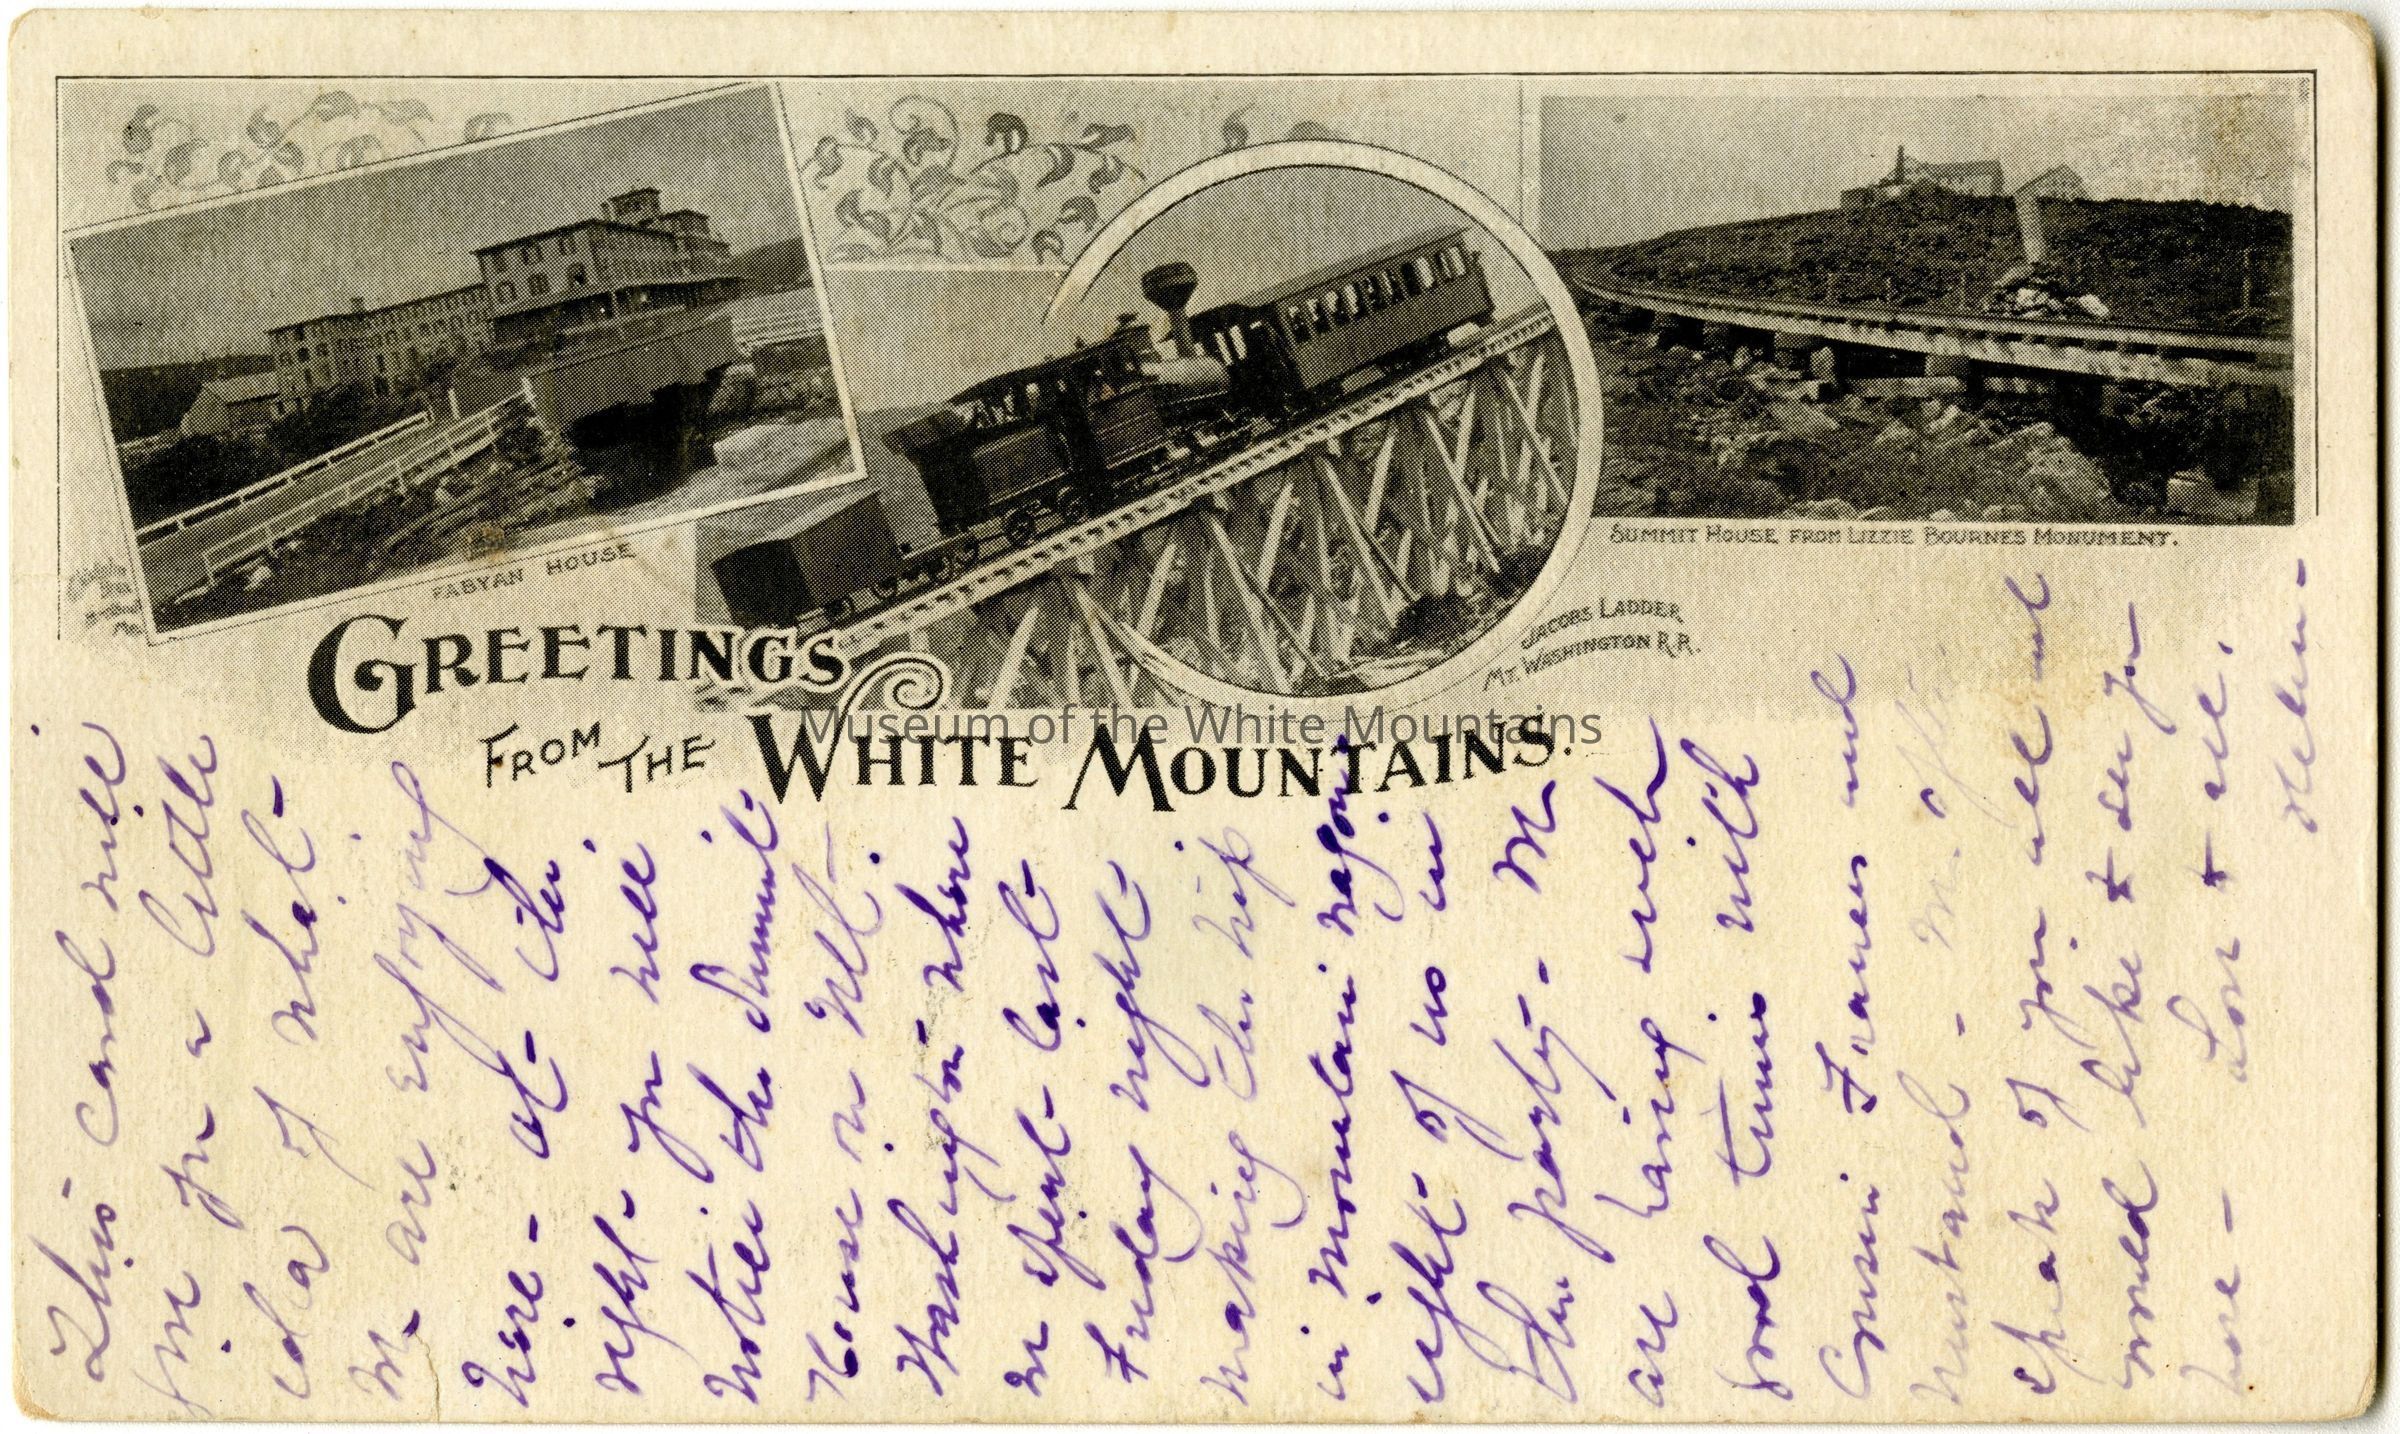 FABYAN HOUSE
SUMMIT HOUSE FROM LIZZIE BOURNES MONUMENT.
JACOBS LADDER
MT. WASHINGTON R.R.
GREETINGS
FROM THE WHITE MOUNTAINS.
Museum of the White Mountains
This card will
give you a little
idea of what
we are enjoying
here - at the
right. You will
notice the Summit
House on Mt.
Washington where
we spent last
Friday night
making the trip
in mountain wagon
eight of us in
the party - We
are having such
good times with
Cousin Frances and
husband - We often
speak of you all and
would like to see you
here - Love to all.
Helen -